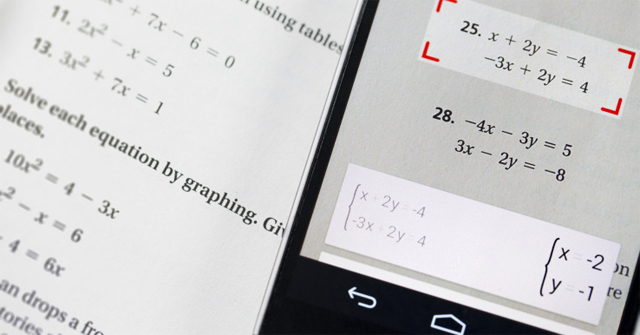 using tables
+ 7x − 6 = 0
11. 2x² − x = 5
13. 3x² + 7x = 1
Solve each equation by graphing.
places.
10x² = 4 − 3x
− x = 6
4 = 6x
an drops a
25. x + 2y = −4
−3x + 2y = 4
28. −4x − 3y = 5
3x − 2y = −8
x + 2y = -4
-3x + 2y = 4
x = -2
y = -1